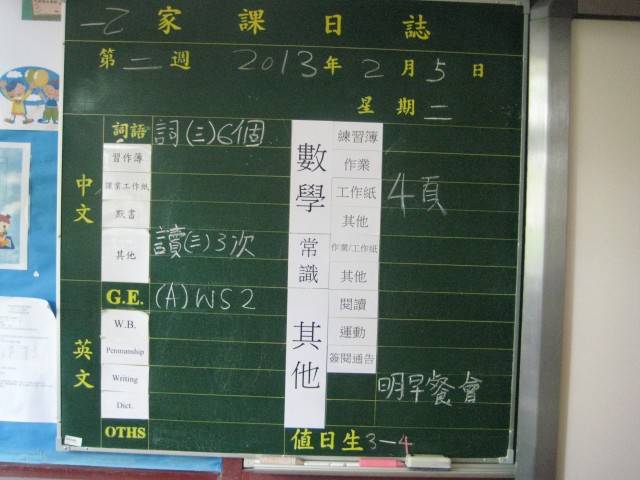 一乙 家課日誌
第二週 2013年2月5日
星期二
中文
詞語 詞(三)6個
習作薄
課業工作紙
默書
其他 讀(三)3次
英文
G.E. (A) WS 2
W.B.
Penmanship
Writing
Dict.
OTHS
數學
練習簿
作業
工作紙 4頁
其他
常識
作業/工作紙
其他
其他
閱讀
運動
簽閱通告
明早餐會
值日生 3-4